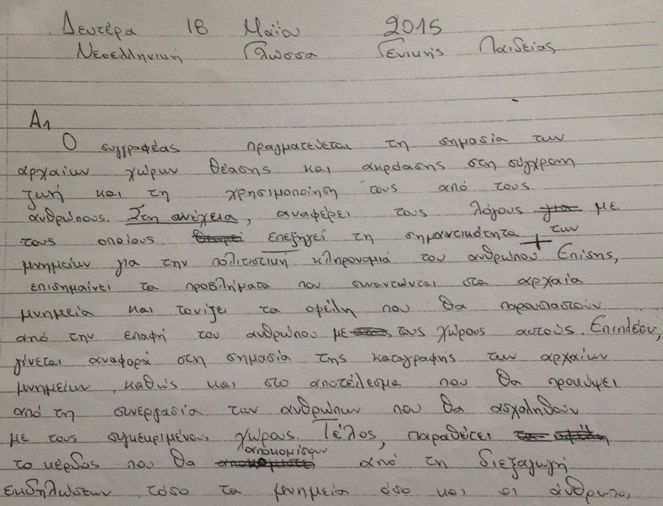 Δευτέρα 18 Μαΐου 2015
Νεοελληνική Γλώσσα Γενικής Παιδείας
Α1
Ο συγγραφέας πραγματεύεται τη σημασία των
αρχαίων χώρων θέασης και ακρόασης στη σύγχρονη
ζωή και τη χρησιμοποίηση τους από τους
ανθρώπους. Στη συνέχεια, αναφέρει τους λόγους για με
τους οποίους επεξηγεί τη σημαντικότητα των
μνημείων για την πολιτιστική κληρονομιά του ανθρώπου. Επίσης,
επισημαίνει τα προβλήματα που συναντώνται στα αρχαία
μνημεία και τονίζει τα οφέλη που θα παρουσιαστούν
από την επαφή του ανθρώπου με τους χώρους αυτούς. Επιπλέον,
γίνεται αναφορά στη σημασία της καταγραφής των αρχαίων
μνημείων, καθώς και στο αποτέλεσμα που θα προκύψει
από τη συνεργασία των ανθρώπων που θα ασχοληθούν
με τους συγκεκριμένους χώρους. Τέλος, παραθέτει
το κέρδος που θα αποκομίσουν από τη διεξαγωγή
εκδηλώσεων τόσο τα μνημεία όσο και οι άνθρωποι,